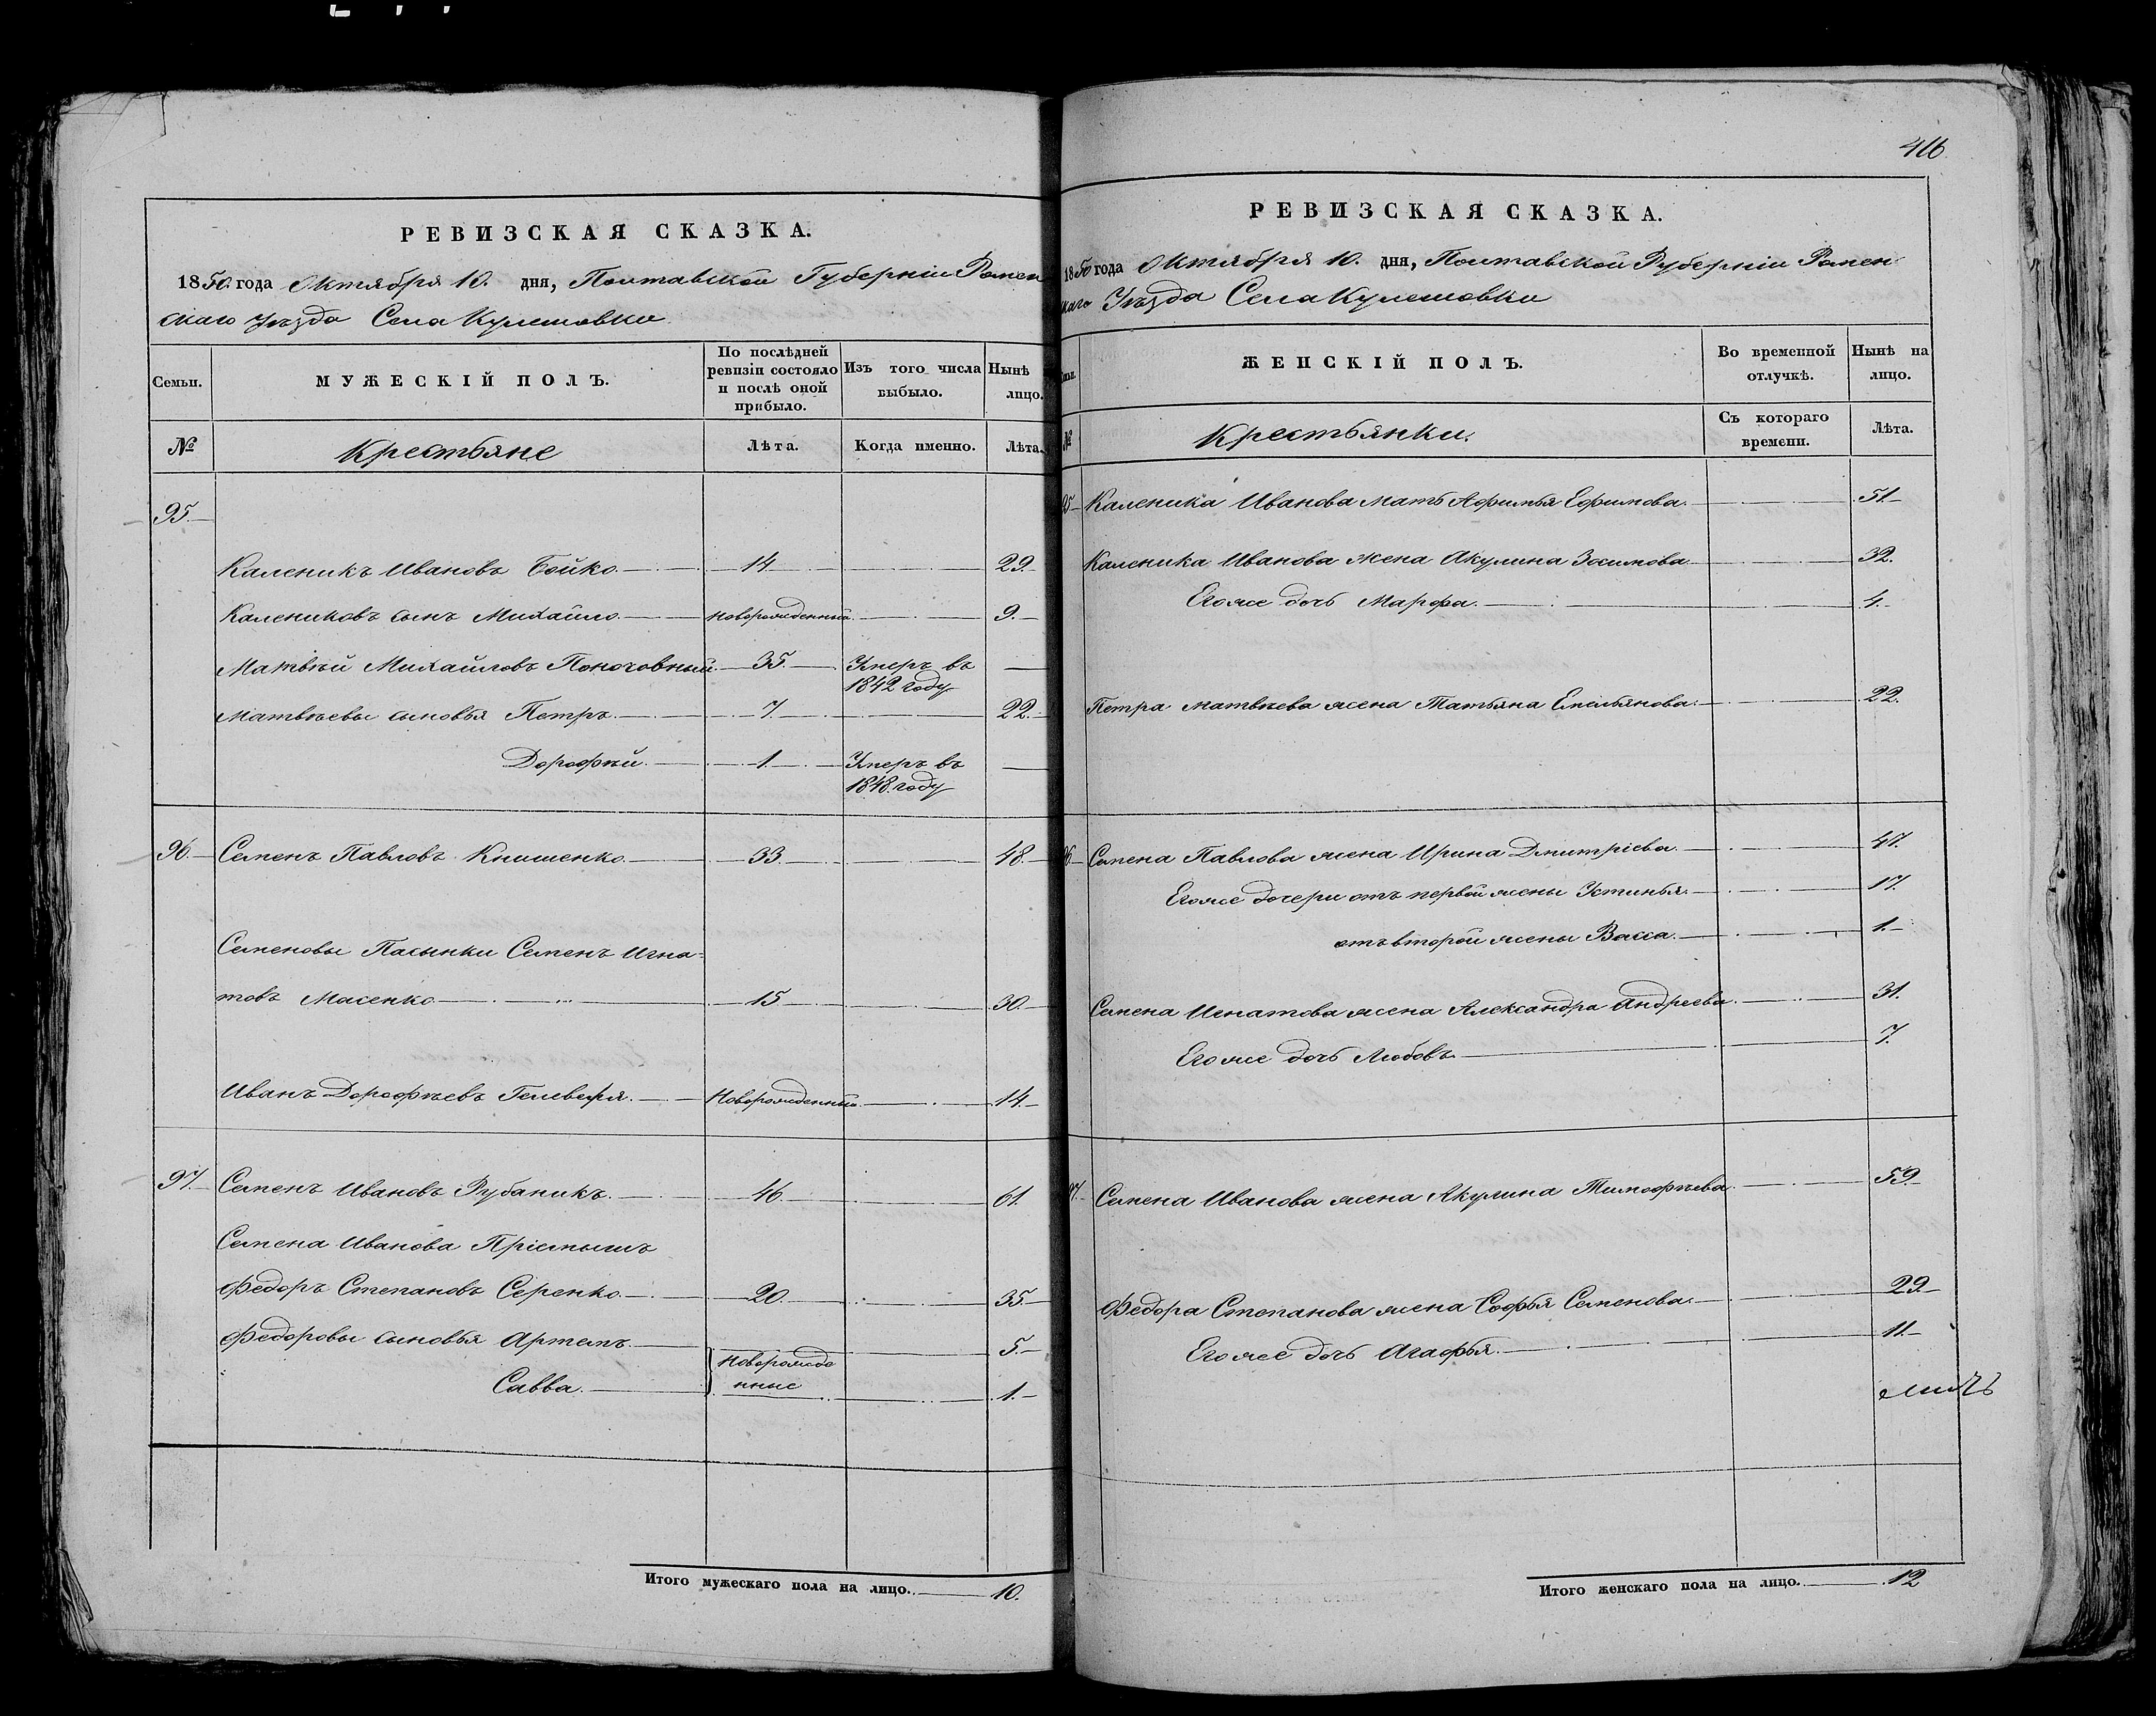 РЕВИЗСКАЯ СКАЗКА.
1850 года Октября 10. дня, Полтавской Губерніи Ромен
скаго уѣзда Села Кулешовки
Семьи.
МУЖЕСКІЙ ПОЛЪ.
По послѣдней
ревизіи состояло
и послѣ оной
прибыло.
Изъ того числа
выбыло.
Нынѣ
лицо.
№
Крестьяне
Лѣта.
Когда именно.
Лѣта.
95.
Каленикъ Ивановъ Бойко. 14. 29.
Калениковъ сынъ Михайло. новорожденный. 9.
Матвѣй Михайловъ Поночовный. 35. Умеръ въ
1842 году
Матвѣевы сыновья Петръ. 7. 22.
Дорофѣй. 1. Умеръ въ
1848. году
96. Семенъ Павловъ Книшенко. 33. 48.
Семеновы Пасынки Семенъ Игна-
товъ Масенко 15 30.
Иванъ Дорофѣевъ новорожденный. 14.
97. Семенъ Ивановъ Рубаникъ. 46. 61.
Семена Иванова Пріемышъ
Федоръ Степановъ Серенко. 20. 35.
Федоровы сыновья Артемъ. 5.
новорожде
нные
Савва. 1.
Итого мужескаго пола на лицо. 10.
416
РЕВИЗСКАЯ СКАЗКА.
1850 года Октября 10. дня, Полтавской Губерніи Ромен
скаго Уѣзда Села Кулешовки
ЖЕНСКІЙ ПОЛЪ.
Во временной
отлучкѣ.
Нынѣ на
лицо.
№
Крестьянки.
Съ котораго
времени.
Лѣта.
95 Каленика Иванова мать Афимья Ефимова. 51.
Каленика Иванова жена Акулина Зосимова 32.
Егоже дочь Марфа. 4.
Петра Матвѣева жена Татьяна Емельянова. 22.
96 Семена Павлова жена Ирина Дмитріева. 47.
Егоже дочери отъ первой жены Устинья. 17.
отъ второй жены Васса. 1.
Семена Игнатова жена Александра Андреева. 31.
Егоже дочь Любовь. 7.
97. Семена Иванова жена Акулина Тимофѣева 59.
Федора Степанова жена Софья Семенова. 29.
Егоже дочь Агафья. 11.
Итого женскаго пола на лицо. 12